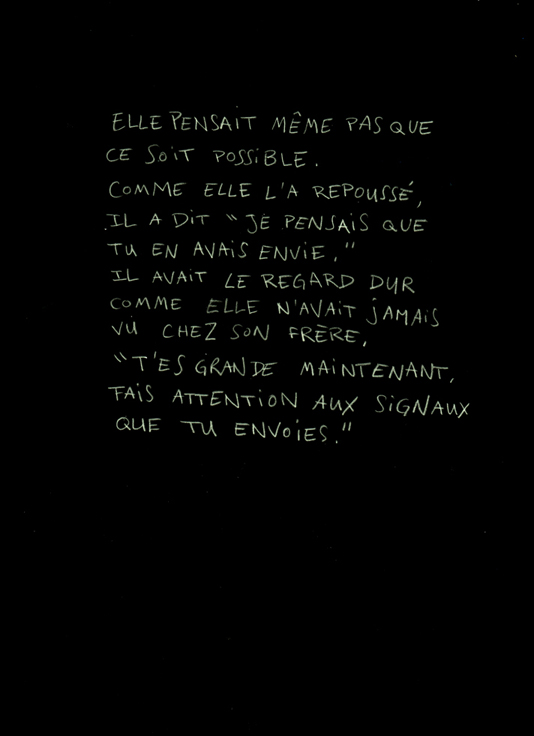 ELLE PENSAIT MÊME PAS QUE
CE SOIT POSSIBLE.
COMME ELLE L'A REPOUSSÉ,
IL A DIT "JE PENSAIS QUE
TU EN AVAIS ENVIE."
IL AVAIT LE REGARD DUR
COMME ELLE N'AVAIT JAMAIS
VU CHEZ SON FRÈRE,
"T'ES GRANDE MAINTENANT,
FAIS ATTENTION AUX SIGNAUX
QUE TU ENVOIES."